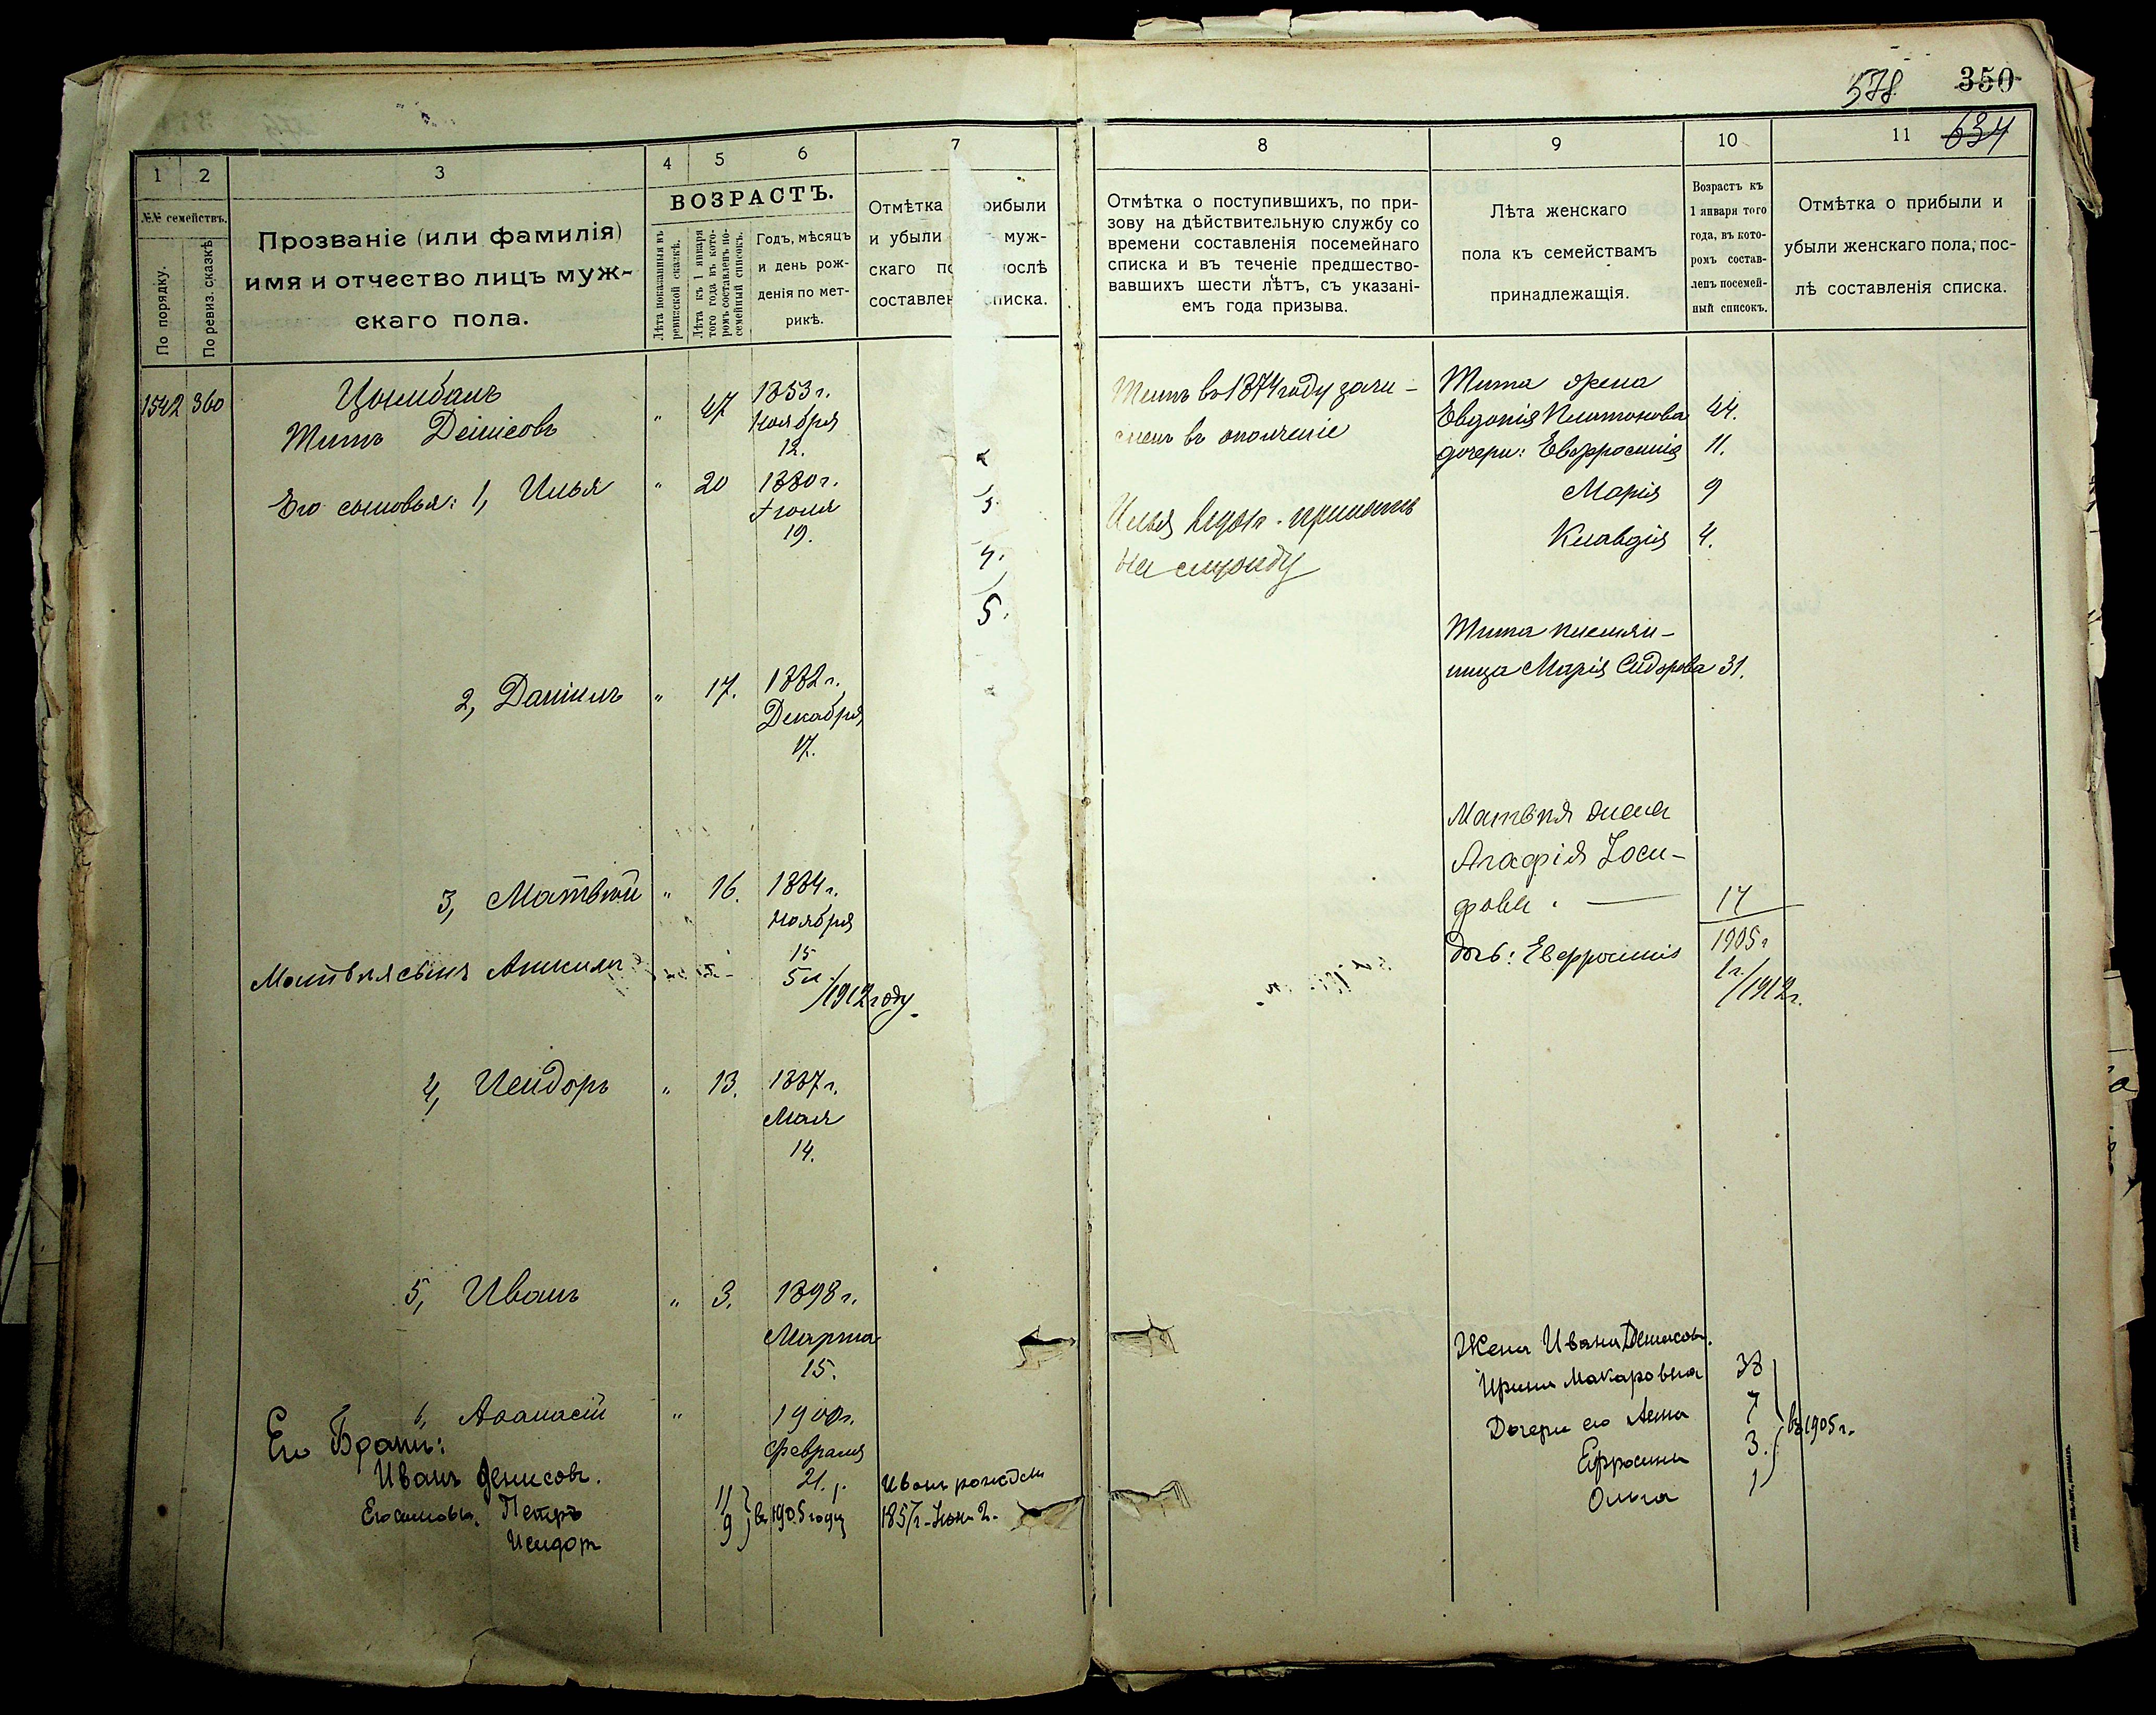 578 350
634
1 2 3 4 5 6 7
№№ семействъ.
По порядку.
По ревиз. сказкѣ
Прозваніе (или фамилія)
имя и отчество лицъ муж-
скаго пола.
ВОЗРАСТЪ.
Лѣта показанныя въ
ревизской сказкѣ.
Лѣта къ 1 января
того года въ кото-
ромъ составленъ по-
семейный списокъ.
Годъ, мѣсяцъ
и день рож-
денія по мет-
рикѣ.
Отмѣтка рибыли
и убыли муж-
скаго по ослѣ
составлен списка.
1542 360
Цымбалъ
Титъ Денисовъ " 47 1853 г.
Ноября
12.
Его сыновья: 1, Илья " 20 1880 г.
Іюля
19.
3.
4.
5.
2, Даніилъ " 17. 1882 г.
Декабря
17.
3, Матвѣй " 16. 1884 г.
Ноября
15
Матвѣя сынъ
5 м./1912 году.
4, Исидоръ " 13. 1887 г.
Мая
14.
5, Иванъ " 3. 1898 г.
Марта
15.
6, Аѳанасій " 1900 г.
Февраля
21.
Его Братъ:
Иванъ Денисовъ.
Его сыновья: Петръ 11
Исидоръ 9 } въ 1905 году
Иванъ рожден
1857 г. Іюн 2.
8 9 10 11
Отмѣтка о поступившихъ, по при-
зову на дѣйствительную службу со
времени составленія посемейнаго
списка и въ теченіе предшество-
вавшихъ шести лѣтъ, съ указані-
емъ года призыва.
Лѣта женскаго
пола къ семействамъ
принадлежащія.
Возрастъ къ
1 января того
года, въ кото-
ромъ состав-
ленъ посемей-
ный списокъ.
Отмѣтка о прибыли и
убыли женскаго пола, пос-
лѣ составленія списка.
Титъ въ 1874 году зачи-
сленъ въ ополченіе
Илья принятъ
на службу
Тита жена
Евдокія Платонова 44.
дочери: Евфросинія 11.
Марія 9
Клавдія 4.
Тита племян-
ница Марія Сидорова 31.
Матвѣя жена
Агафія Іоси-
фова. — 17
1905 г
дочь: Евфросинія 1 г./1912 г.
Жена Ивана Денисов.
Ирина Макаровна 38
Дочери его Анна 7
Ефросинія 3. } въ 1905 г.
Ольга 1